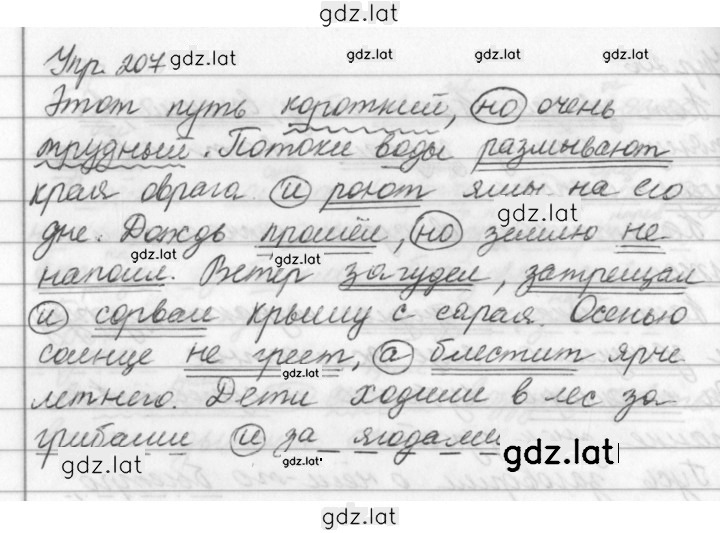 gdz.lat
Упр. 207 gdz.lat gdz.lat gdz.lat gdz.lat
Этот путь короткий, но очень
трудный. Потоки воды размывают
края оврага и роют ямы на его
gdz.lat
дне. Дождь прошёл, но землю не
gdz.lat gdz.lat
напоил. Ветер загудел, затрещал
и сорвал крышу с сарая. Осенью
солнце не греет, а блестит ярче
gdz.lat
летнего. Дети ходили в лес за
грибами и за ягодами
gdz.lat gdz.lat gdz.lat
gdz.lat